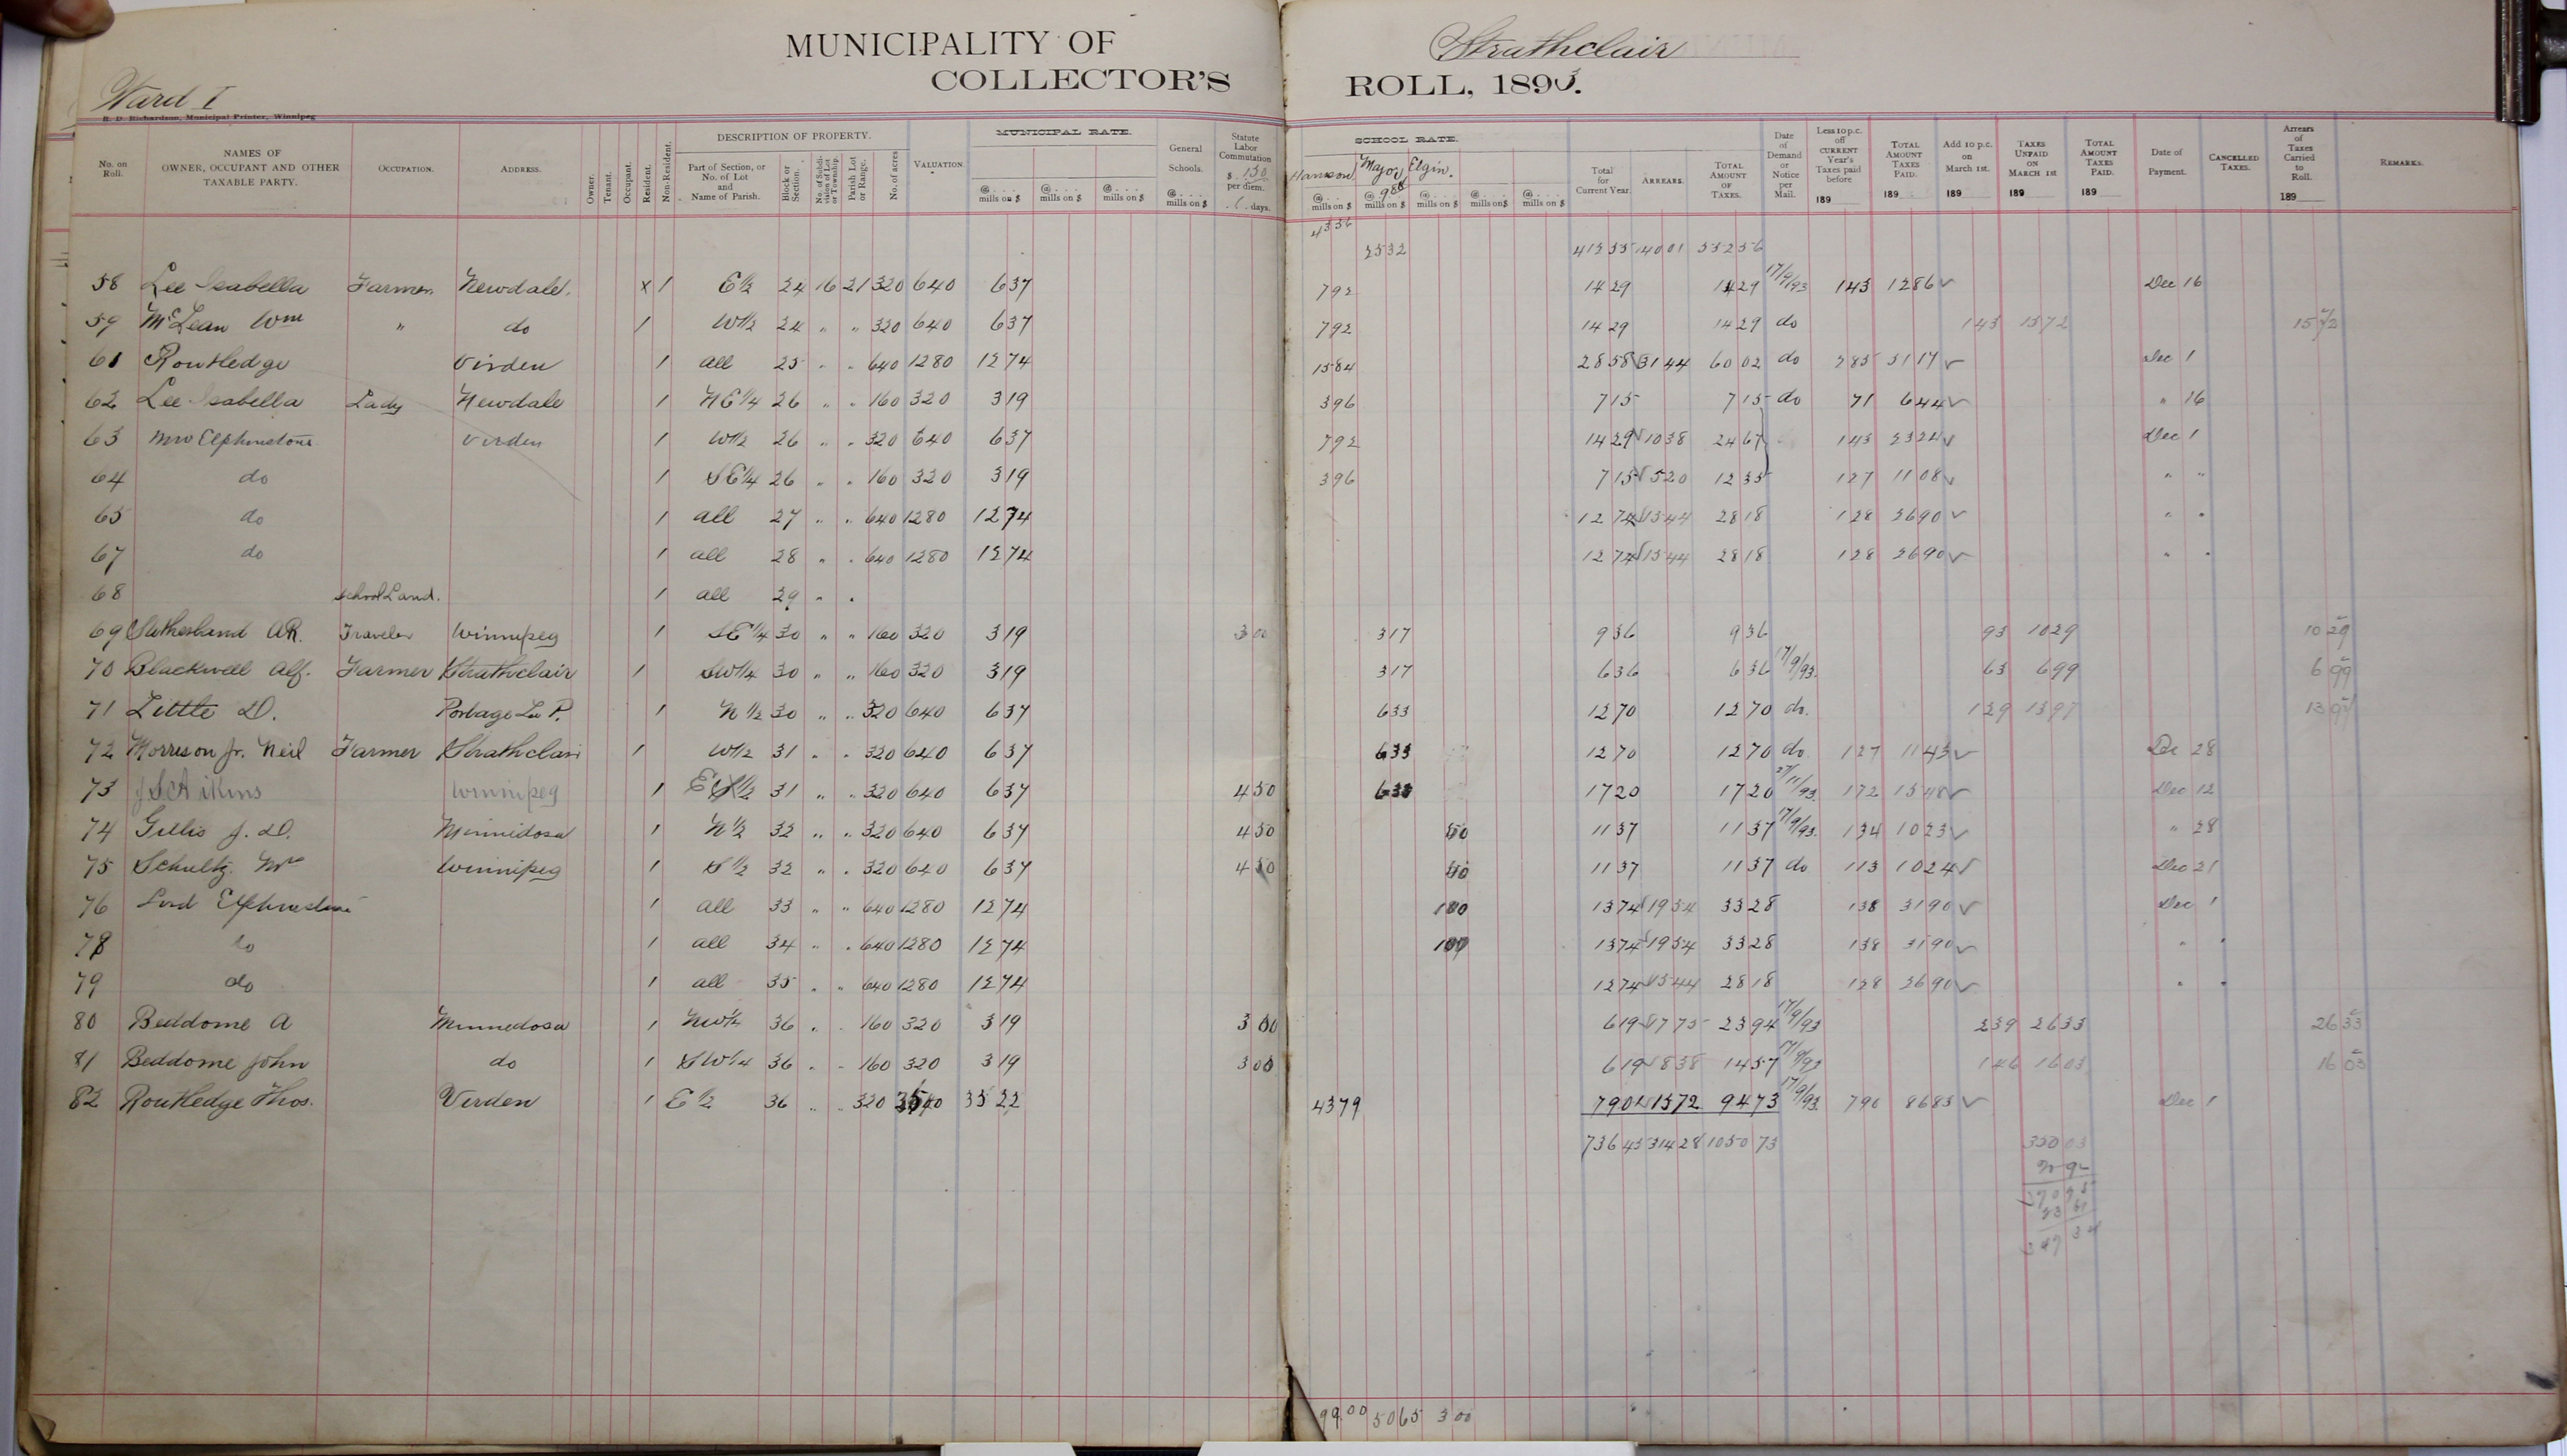 MUNICIPALITY OF Strathclair
COLLECTOR'S ROLL, 1893.
Ward I
R. D. Richardson, Municipal Printer, Winnipeg
No. on Roll. NAMES OF OWNER, OCCUPANT AND OTHER TAXABLE PARTY. OCCUPATION. ADDRESS. Owner. Tenant. Occupant. Resident. Non-Resident. DESCRIPTION OF PROPERTY. Part of Section, or No. of Lot and Name of Parish. Block or Section. No. of Subdivision of Lot or Township. Parish Lot or Range. No. of acres VALUATION. MUNICIPAL RATE. @ mills on $ @ mills on $ @ mills on $ General Schools. @ mills on $ Statute Labor Commutation $ 1.50 per diem. 6 days. SCHOOL RATE. Hamson Major Elgin. @ mills on $ @ mills on $ @ mills on $ @ mills on $ @ mills on $ Total for Current Year. ARREARS. TOTAL AMOUNT OF TAXES. Date of Demand or Notice per Mail. Less 10 p.c. off CURRENT Year's Taxes paid before 189 TOTAL AMOUNT TAXES PAID. 189 Add 10 p.c. on March 1st. 189 TAXES UNPAID ON MARCH 1ST 189 TOTAL AMOUNT TAXES PAID. 189 Date of Payment. CANCELLED TAXES. Arrears of Taxes Carried to Roll. 189 REMARKS.
4356
2532 140 01 552 56
58 Lee Isabella Farmer Newdale. X 1 E½ 24 16 21 320 640 6 37 7 92 14 29 14 29 17/9/93 1 43 12 86 ✓ Dec 16
59 McLean Wm " do 1 W½ 24 " " 320 640 6 37 7 92 14 29 14 29 do 1 43 15 72 15 72
61 Routledge Virden 1 all 25 " " 640 1280 12 74 15 84 28 58 31 44 60 02 do 2 85 57 17 ✓ Dec 1
62 Lee Isabella Lady Newdale 1 NE¼ 26 " " 160 320 3 19 3 96 7 15 7 15 do 71 6 44 ✓ " 16
63 Elphinstone Virden 1 W½ 26 " " 320 640 6 37 7 92 14 29 10 38 24 67 1 43 23 24 ✓ Dec 1
64 do 1 SE¼ 26 " " 160 320 3 19 3 96 7 15 5 20 12 35 1 27 11 08 ✓ " "
65 do 1 all 27 " " 640 1280 12 74 12 74 15 44 28 18 1 28 26 90 ✓ " "
67 do 1 all 28 " " 640 1280 12 74 12 74 15 44 28 18 1 28 26 90 ✓ " "
68 School Land. 1 all 29 " "
69 Sutherland A R. Traveler Winnipeg 1 SE¼ 30 " " 160 320 3 19 3 00 3 17 9 36 9 36 93 10 29 10 29
70 Blackwell Alf. Farmer Strathclair 1 SW¼ 30 " " 160 320 3 19 3 17 6 36 6 36 17/9/93. 63 6 99 6 99
71 Little D. Portage La P. 1 N½ 30 " " 320 640 6 37 6 33 12 70 12 70 do. 1 29 13 97 13 97
72 Morrison Jr. Neil Farmer Strathclair 1 W½ 31 " " 320 640 6 37 6 33 12 70 12 70 do. 1 27 11 43 ✓ Dec 28
73 J S Aikins Winnipeg 1 E½ 31 " " 320 640 6 37 4 50 6 33 17 20 17 20 27/11/93. 1 72 15 48 ✓ Dec 12
74 Gillis J. D. Minnidosa 1 N½ 32 " " 320 640 6 37 4 50 50 11 37 11 37 17/9/93. 1 34 10 23 ✓ " 28
75 Schultz Mr Winnipeg 1 S½ 32 " " 320 640 6 37 4 50 50 11 37 11 37 do 1 13 10 24 ✓ Dec 21
76 Lord Elphinstone 1 all 33 " " 640 1280 12 74 1 00 13 74 19 54 33 28 1 38 31 90 ✓ Dec 1
78 do 1 all 34 " " 640 1280 12 74 1 00 13 74 19 54 33 28 1 38 31 90 ✓ " "
79 do 1 all 35 " " 640 1280 12 74 12 74 15 44 28 18 1 28 26 90 ✓ " "
80 Beddome A Minnedosa 1 NW¼ 36 " " 160 320 3 19 3 00 6 19 17 75 23 94 17/9/93 2 39 26 33 26 33
81 Beddome John do 1 SW¼ 36 " " 160 320 3 19 3 00 6 19 8 38 14 57 17/9/93 1 46 16 03 16 03
82 Routledge Thos. Virden 1 E½ 36 " " 320 3540 35 22 43 79 79 01 15 72 94 73 17/9/93. 7 90 86 83 ✓ Dec 1
736 45 314 28 1050 73
350 03
99 00 50 65 3 00